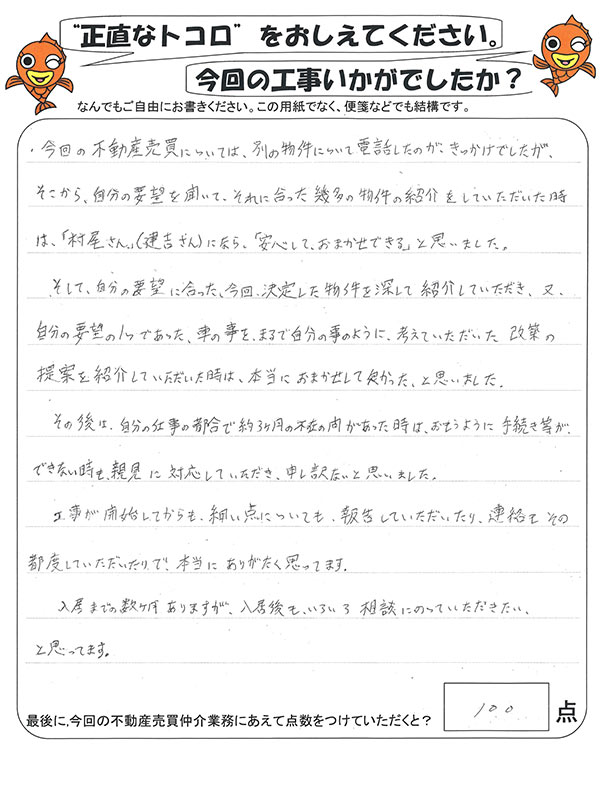 "正直なトコロ" をおしえてください。
今回の工事いかがでしたか？
なんでもご自由にお書きください。この用紙でなく、便箋などでも結構です。
・今回の不動産売買については、別の物件について電話したのが、きっかけでしたが、
そこから、自分の要望を聞いて、それに合った幾多の物件の紹介をしていただいた時
は、「村尾さん」(建吉さん)になら、「安心して、おまかせできる」と思いました。
そして、自分の要望に合った、今回、決定した物件を深して紹介していただき、又、
自分の要望の1つであった、車の事を、まるで自分の事のように、考えていただいた改築の
提案を紹介していただいた時は、本当におまかせして良かった、と思いました。
その後は、自分の仕事の都合で約3ヶ月の不在の間があった時は、おもうように手続き等が、
できない時も、親見に対応していただき、申し訳ないと思いました。
工事が開始してからも、細い点についても、報告していただいたり、連絡をその
都度していただいたりで、本当にありがたく思ってます。
入居までの数ヶ月ありますが、入居後も、いろいろ相談にのっていただきたい、
と思ってます。
最後に、今回の不動産売買仲介業務にあえて点数をつけていただくと？ 100 点